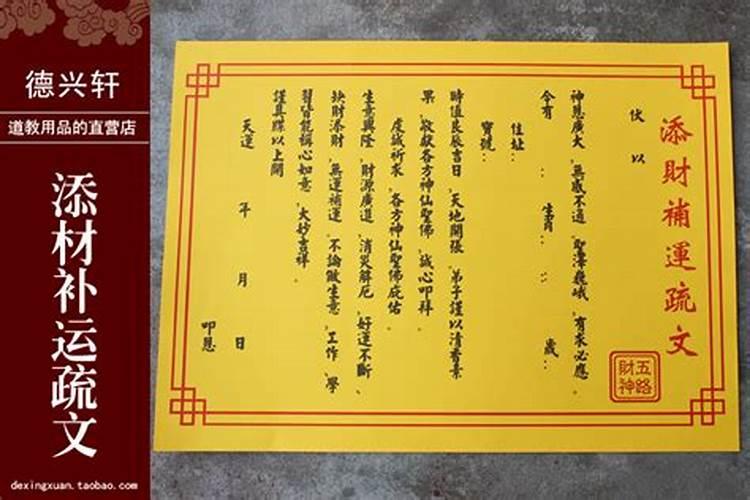 德兴轩
道教用品的直营店
添材补运疏文
dexingxuan.taobao.com
添財補運疏文
五路
財神
伏以
神恩廣大、無感不通、聖澤巍峨、有求必應。
今有 : 生肖 : : 歲:
住址:
寶號:
時值良辰吉日、天地開張、弟子謹以清香素
果、敬獻各方神仙聖佛、誠心叩拜。
虔誠祈求、各方神仙聖佛庇佑。
生意興隆、財源廣進、消災解厄、好運不斷、
缺財添財、無運補運、不論做生意、工作、學
習皆能稱心如意、大妙吉祥。
謹具疎以上聞
天運 年 月 日
叩恩